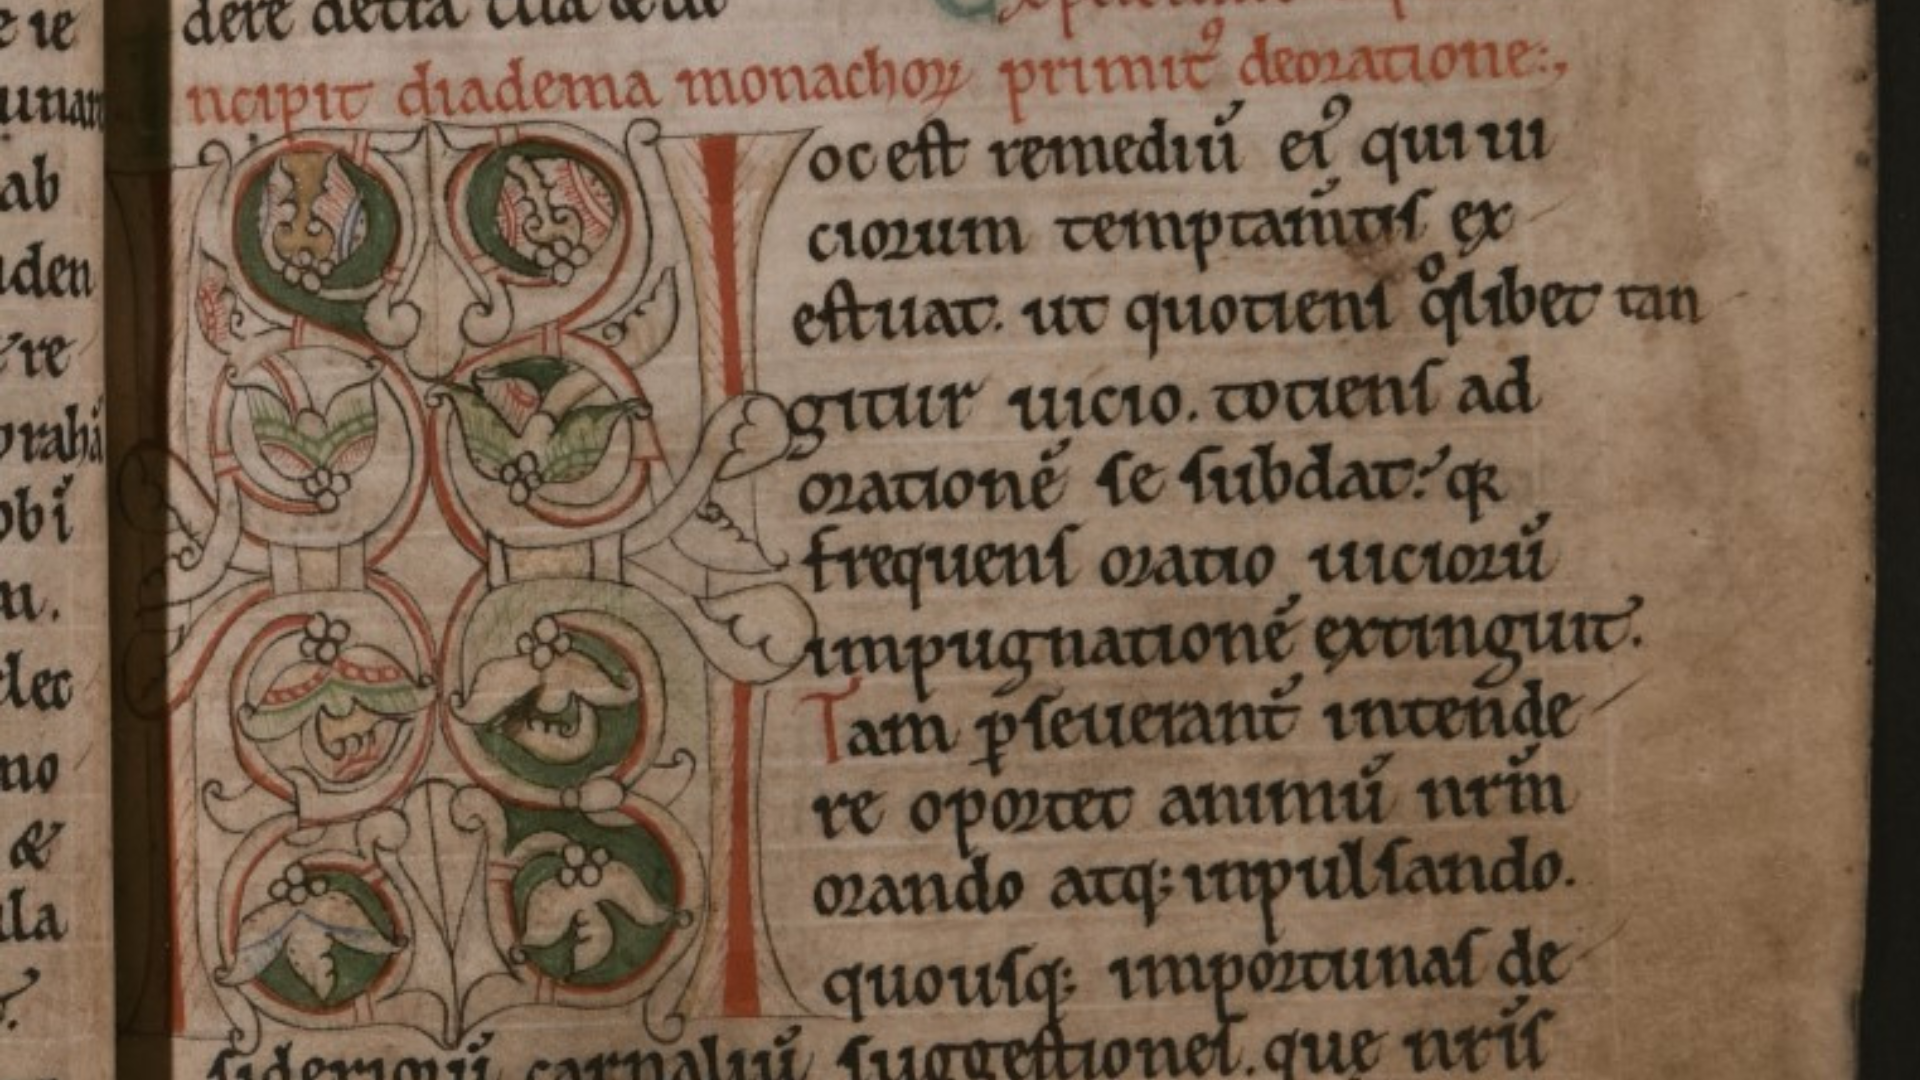 e ie
unam
ab
uden
re
brahā
obi
m.
lec
no
&
ula
dere
ncipit diadema monachoꝝ primitꝰ deoratione:,
oc eſt remediū eiꝰ qui ui
ciorum temptamtiſ ex
eſtuat. ut quotienſ qͦlibet tan
gitur uicio. totienſ ad
orationē ſe ſubdat: qꝛ
frequenſ oratio uiciorū
impugnationē extinguit.
Tam ꝑſeuerant̄ intende
re oportet animū nrm̄
orando atq; inpulſando.
quouſq; importunaſ de
ſideriorū carnaliū ſuggeſtioneſ. que nriſ̄